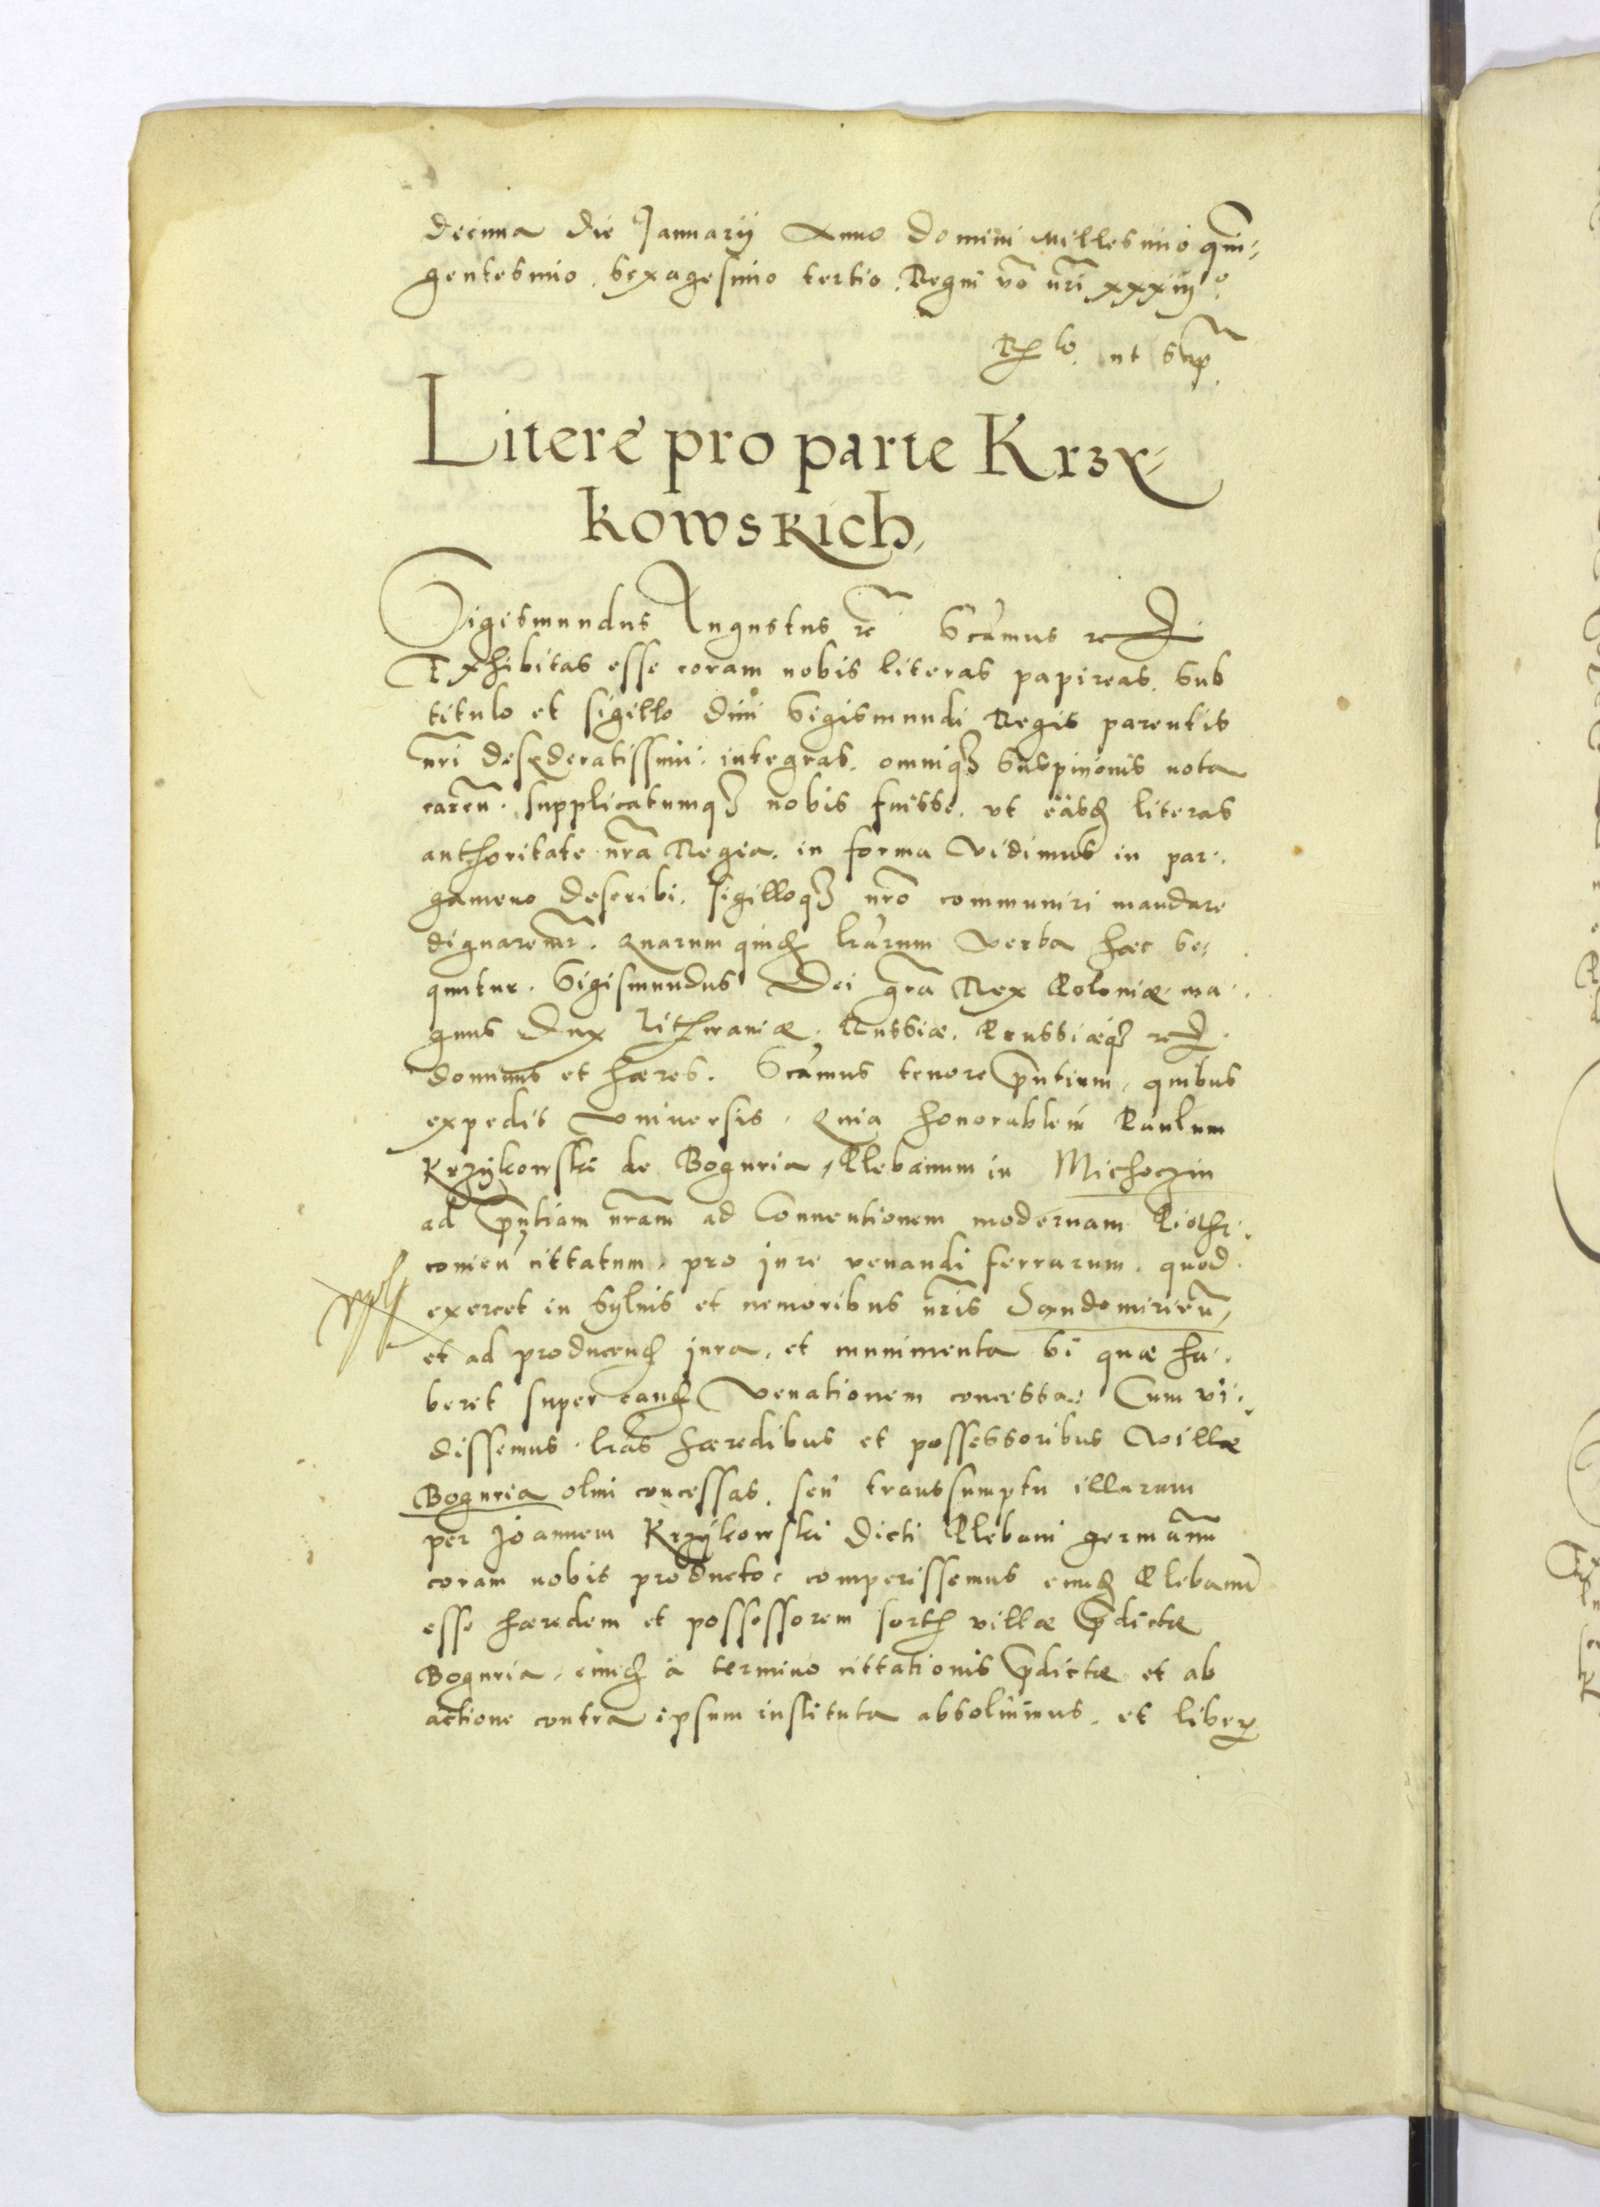 decima die Januarij Anno Domini Millesimo quin-
gentesimo sexagesimo tertio. Regni vo nri xxxiij°
Rx lo. ut sup
Litere pro parte Krzy-
kowskich,
Sigismundus Augustus rc Scamus rc
Exhibitas esse coram nobis literas papireas, sub
titulo et sigillo dini Sigismundi Regis parentis
nri desyderatissimi. integras. omniq3 suspicionis nota
caren. supplicatumq3 nobis fuisse. ut easd literas
authoritate nra Regia. in forma Vidimus in par-
gameno describi. sigilloq3 nro communiri mandare
dignaremr. Quarum quid lrarum verba haec se-
quntur. Sigismundus Dei gra Rex Poloniæ. ma-
gnus Dux Lithvaniæ. Russiæ. Prussiæq3 rc
dominus et hæres. Scamus tenore pntium, quibus
expedit vniuersis. Quia honorablem Paulum
Krzykowski de Boguria, Plebanum in Michoczin
ad pntiam nram ad Conuentionem modernam Piothr-
couien cittatum, pro jure venandi ferrarum. quod
exercet in syluis et nemoribus nris Sandomirien,
et ad producend jura, et munimenta si quæ ha-
beret super eand Venationem concessa: Cum vi-
dissemus. lras hæredibus et possessoribus Villæ
Boguria olim concessas. seu transsumptu illarum
per Joannem Krzykowski dicti Plebani germanu
coram nobis producto: comperissemus eund Plebanu
esse hæredem et possessorem sort villæ pdictæ
Boguria, eund à termino cittationis pdictæ et ab
actione contra ipsum instituta absoluimus. et liber